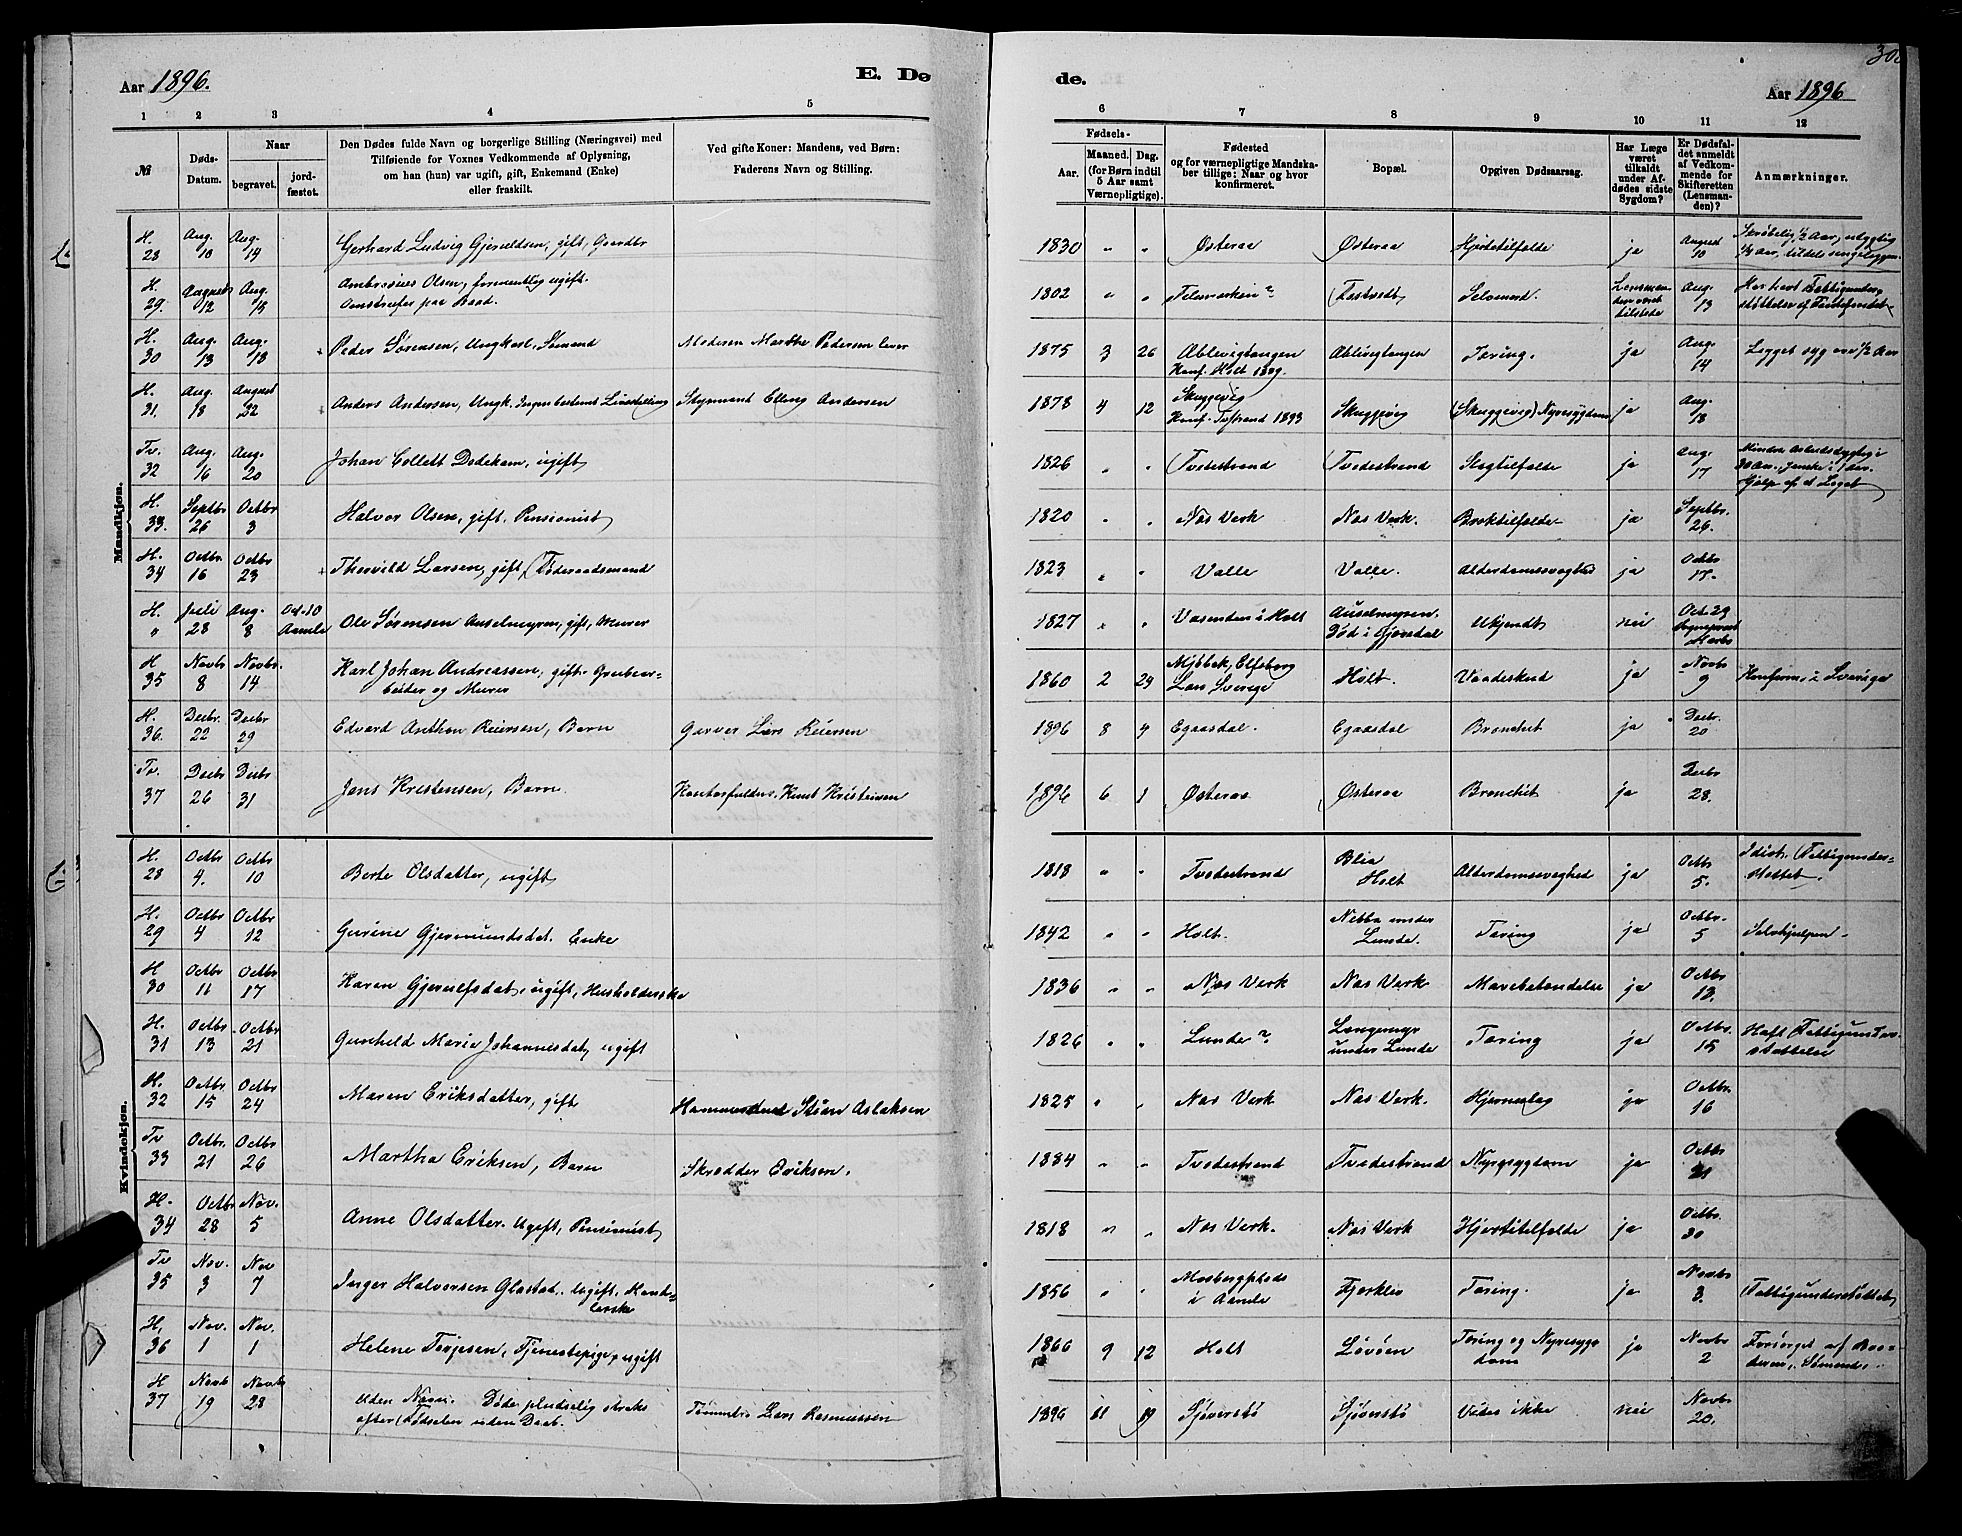 Aar 1896.
E. Dø
de.
Aar 1896
1 2 3 4 5 6 7 8 9 10 11 12
№
Døds-Datum.
Naar
begravet.
jord-fæstet.
Den Dødes fulde Navn og borgerlige Stilling (Næringsvei) med
Tilføiende for Voxnes Vedkommende af Oplysning,
om han (hun) var ugift, gift, Enkemand (Enke)
eller fraskilt.
Ved gifte Koner: Mandens, ved Børn:
Faderens Navn og Stilling.
Fødsels-
Aar.
Maaned. Dag.
(for Børn indtil
5 Aar samt
Værnepligtige).
Fødested
og for værnepligtige Mandska-
ber tillige: Naar og hvor
konfirmeret.
Bopæl.
Opgiven Dødsaarsag.
Har Læge
været
tilkaldt
under Af-
dødes sidste
Sygdom?
Er Dødsfal-
det anmeldt
af Vedkom-
mende for
Skifteretten
(Lensman-
den)?
Anmærkninger.
Mandkjøn.
H. 28 Aug. 10 Aug. 14 Gerhard Ludvig Gjeruldsen, gift, Gaardbr 1830 " " Østeraa Østeraa Hjertetilfælde ja August 10
H. 29. August 12 Aug. 15 Ambrosius Olsen, formentlig ugift. 1802 " " Telemarken? Selvmord. Lensman-den været tilstede Aug. 13
H. 30 Aug. 13 Aug. 18 Peder Sørensen, Ungkarl, Sømand Moderen Marthe Pedersen lever 1875 3 26 Ablevigtangen Konf. Holt 1889. Ablevigtangen Tæring. ja Aug. 14 Ligget syg over 1/2 Aar
H. 31. Aug. 18 August 22 Anders Andersen, Ungk. Ingen bestemt Livsstilling Styrmand Elling Andersen 1878 4 12 Skuggevig Konf. Tvedestrand 1893 Skuggevig (Skuggevig) Nyresygdom ja Aug. 18
Tv. 32 Aug. 16 Aug. 20 Johan Collett Dedekam, ugift 1826 " " Tvedestrand Tvedestrand Slagtilfælde ja Aug. 17
H. 33. Septbr 26 Octbr 3 Halvor Olsen, gift, Pensionist 1820 " " Næs Verk Næs Verk. Broktilfælde ja Septbr. 26.
H. 34 Octbr. 16 Octbr 23 Thorvild Larsen, gift, Føderaadsmand 1823 " " Valle Valle. Alderdomssvaghed ja Octbr 17.
H. " Juli 28 Aug. 8 Oct. 10 Aamle Ole Sørensen Auselmyren, gift, Murer 1827 " " Vasenden i Holt Auselmyren. Død i Gjøvdal Ukjendt nei Oct. 29
H 35 Novbr 8 Novbr. 14 Karl Johan Andreassen, gift. Grubear-
beider og Murer 1860 2 24 Mjöbäk, Elfsborg Län Sverige Holt. Vaadeskud ja Novbr 9 Konfirm. i Sverige
H. 36. Decbr. 22 Decbr 29 Edvard Anthon Reiersen, Barn Garver Lars Reiersen 1896 8 4 Egaasdal. Egaasdal Bronchit ja Decbr. 20
Tv. 37 Decbr 26 Decbr 31 Jens Kristensen, Barn. Knut Kristensen 1896 6 1 Østeraa Østeraa Bronchit ja Decbr 28.
Kvindekjøn.
H. 28 Octbr 4. Octbr 10 Berte Olsdatter, ugift 1818 " " Tvedestrand Blia Holt Alderdomssvaghed ja Octbr 5. Idiot.
H. 29 Octbr 4 Octbr 12 Gurine Gjermundsdat. Enke 1842 " " Holt. Nebba under Lunde. Tæring ja Octbr. 5 Selvhjulpen.
H 30 Octbr 11 Octbr 17 Karen Gjerulfsdat. ugift, Husholderske 1836 " " Næs Verk Næs Verk Mavebetændelse ja Octbr 13.
H. 31 Octbr 13 Octbr 21 Gunhild Marie Johannesdat, ugift 1826 " " Lunde? Langemyr under Lunde Tæring ja Octbr 15 Havt Fattigunder-støttelse
H. 32 Octbr 15 Octbr 24 Maren Eriksdatter, gift Stian Aslaksen 1825 " " Næs Verk Næs Verk. Hjerneslag ja Octbr 16
Tv 33 Octbr. 21 Octbr 26 Martha Eriksen, Barn Skrædder Eriksen. 1884 " " Tvedestrand Tvedestrand Nyresygdom ja Octbr 21
H. 34 Octbr 28 Nov. 5 Anne Olsdatter. Ugift, Pensionist 1818 " " Næs Verk. Næs Verk Hjertetilfælde ja Octbr. 30
Tv 35 Nov. 3 Nov 7 Inger Halvorsen Glastad. ugift. Hand-
lerske 1856 " " i Aamle Fjerkleiv Tæring. ja Novbr 3. Fattigunderstøttet
H. 36 Nov. 1 Nov. 1 Helene Terjesen, Tjenestepige, ugift 1866 9 12 Holt Løvøen Tæring og Nyresyg-dom ja Novbr 2 Forsørget af Bro-deren, Sømand.
H 37 Novb 19 Novbr 28 Uden Navn. Døde pludselig straks
efter Fødselen uden Daab. Tømmerm. Lars Rasmussen 1896 11 19 Sjøverstø Sjøverstø Vides ikke nei Novbr 20.